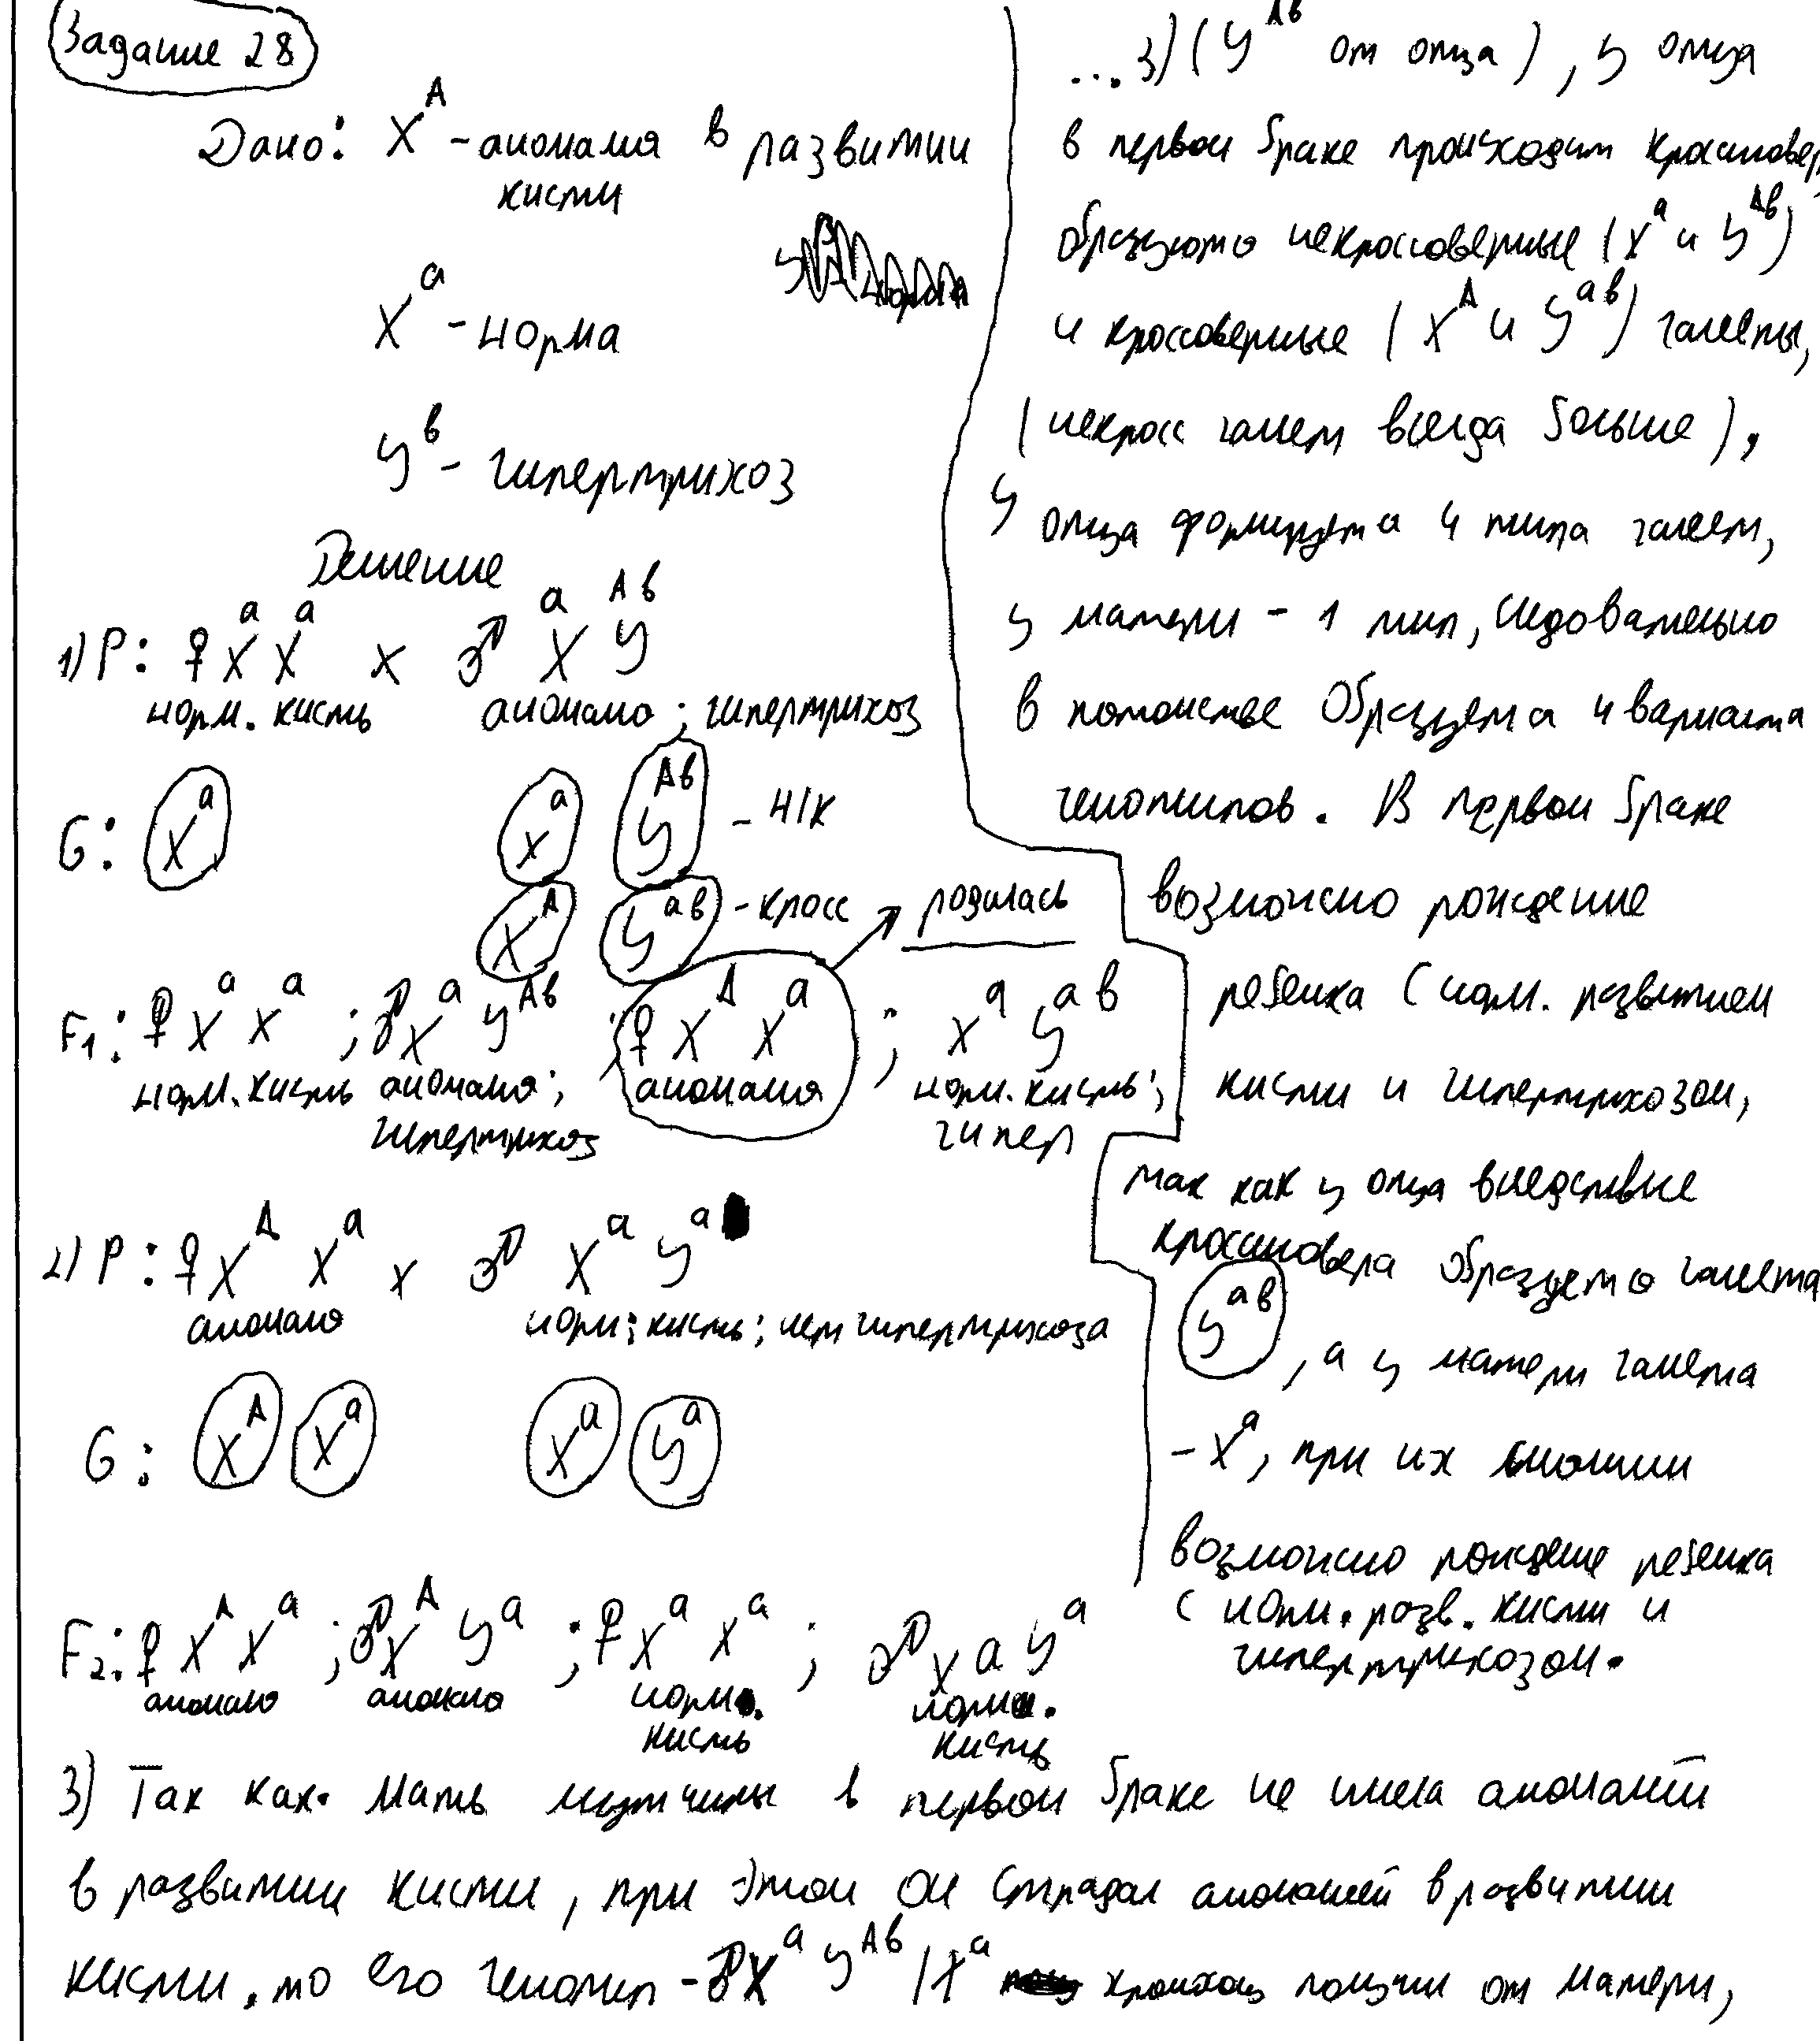 Задание 28
Дано: X^A - аномалия в развитии
кисти
X^a - норма
У^в - гипертрихоз
Решение
1) P: ♀ X^a X^a x ♂ X^a У^Aв
норм. кисть аномалия; гипертрихоз
G: X^a X^a У^Aв - н/к
X^A У^aв - кросс → родилась
F1: ♀ X^a X^a ; ♂ X^a У^Aв ; ♀ X^A X^a ; X^a У^aв
норм. кисть аномалия; аномалия норм. кисть;
гипертрихоз гипер
2) P: ♀ X^A X^a x ♂ X^a У^a
аномалия норм; кисть; нет гипертрихоза
G: X^A X^a X^a У^a
F2: ♀ X^A X^a ; ♂ X^A У^a ; ♀ X^a X^a ; ♂ X^a У^a
аномалия аномалия норм. норм.
кисть кисть
3) Так как мать мужчины в первом браке не имела аномалий
в развитии кисти, при этом он страдал аномалией в развитии
кисти, то его генотип - ♂ X^a У^Aв (X^a хромосому получил от матери,
...3) (У^Aв от отца), у отца
в первом браке происходит кроссинговер,
образуются некроссоверные (X^a и У^Aв)
и кроссоверные (X^A и У^aв) гаметы,
(некросс гамет всегда больше),
у отца формируется 4 типа гамет,
у матери - 1 тип, следовательно
в потомстве образуется 4 варианта
генотипов. В первом браке
возможно рождение
ребенка с норм. развитием
кисти и гипертрихозом,
так как у отца вследствие
кроссинговера образуется гамета
У^aв, а у матери гамета
- X^a, при их слиянии
возможно рождение ребенка
с норм. разв. кисти и
гипертрихозом.